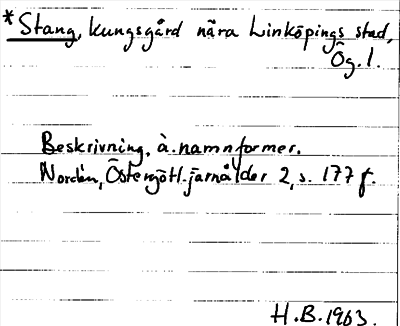 *Stang, kungsgård nära Linköpings stad,
Ög. l.
Beskrivning, à. namnformer.
Nordén, Östergötl. järnålder 2, s. 177 f.
H.B. 1963.